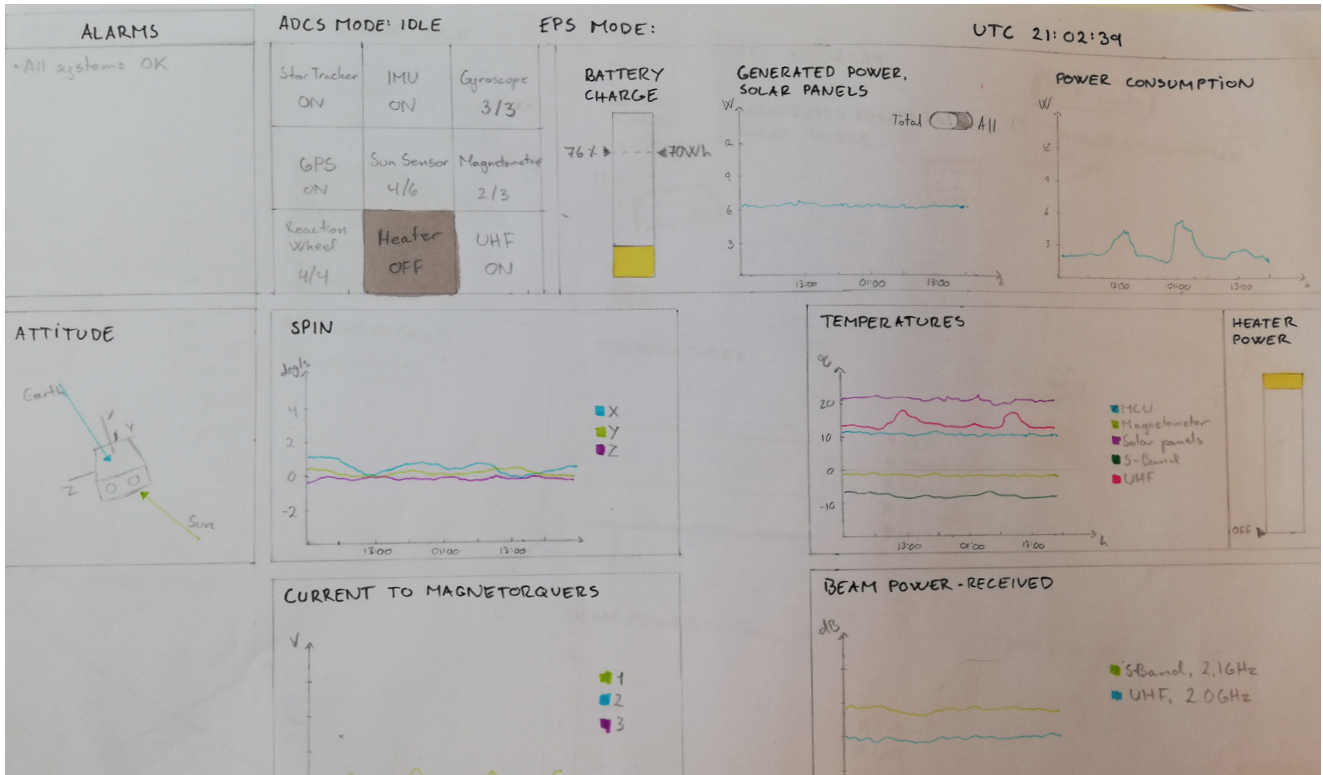 ALARMS
• All systems OK
ADCS MODE: IDLE
Star Tracker
ON
IMU
ON
Gyroscope
3/3
GPS
ON
Sun Sensor
4/6
Magnetometer
2/3
Reaction
Wheel
4/4
Heater
OFF
UHF
ON
EPS MODE:
UTC 21:02:39
BATTERY
CHARGE
76%
70Wh
GENERATED POWER,
SOLAR PANELS
W
Total
All
12
9
6
3
13:00
01:00
13:00
h
POWER CONSUMPTION
W
12
9
6
3
13:00
01:00
13:00
h
ATTITUDE
Earth
Y
Z
Sun
SPIN
deg/s
4
2
0
-2
13:00
01:00
13:00
X
Y
Z
TEMPERATURES
°C
20
10
0
-10
13:00
01:00
13:00
h
MCU
Magnetometer
Solar panels
S-Band
UHF
HEATER
POWER
OFF
CURRENT TO MAGNETORQUERS
V
1
2
3
BEAM POWER-RECEIVED
dB
S-Band, 2,1GHz
UHF, 2.0GHz